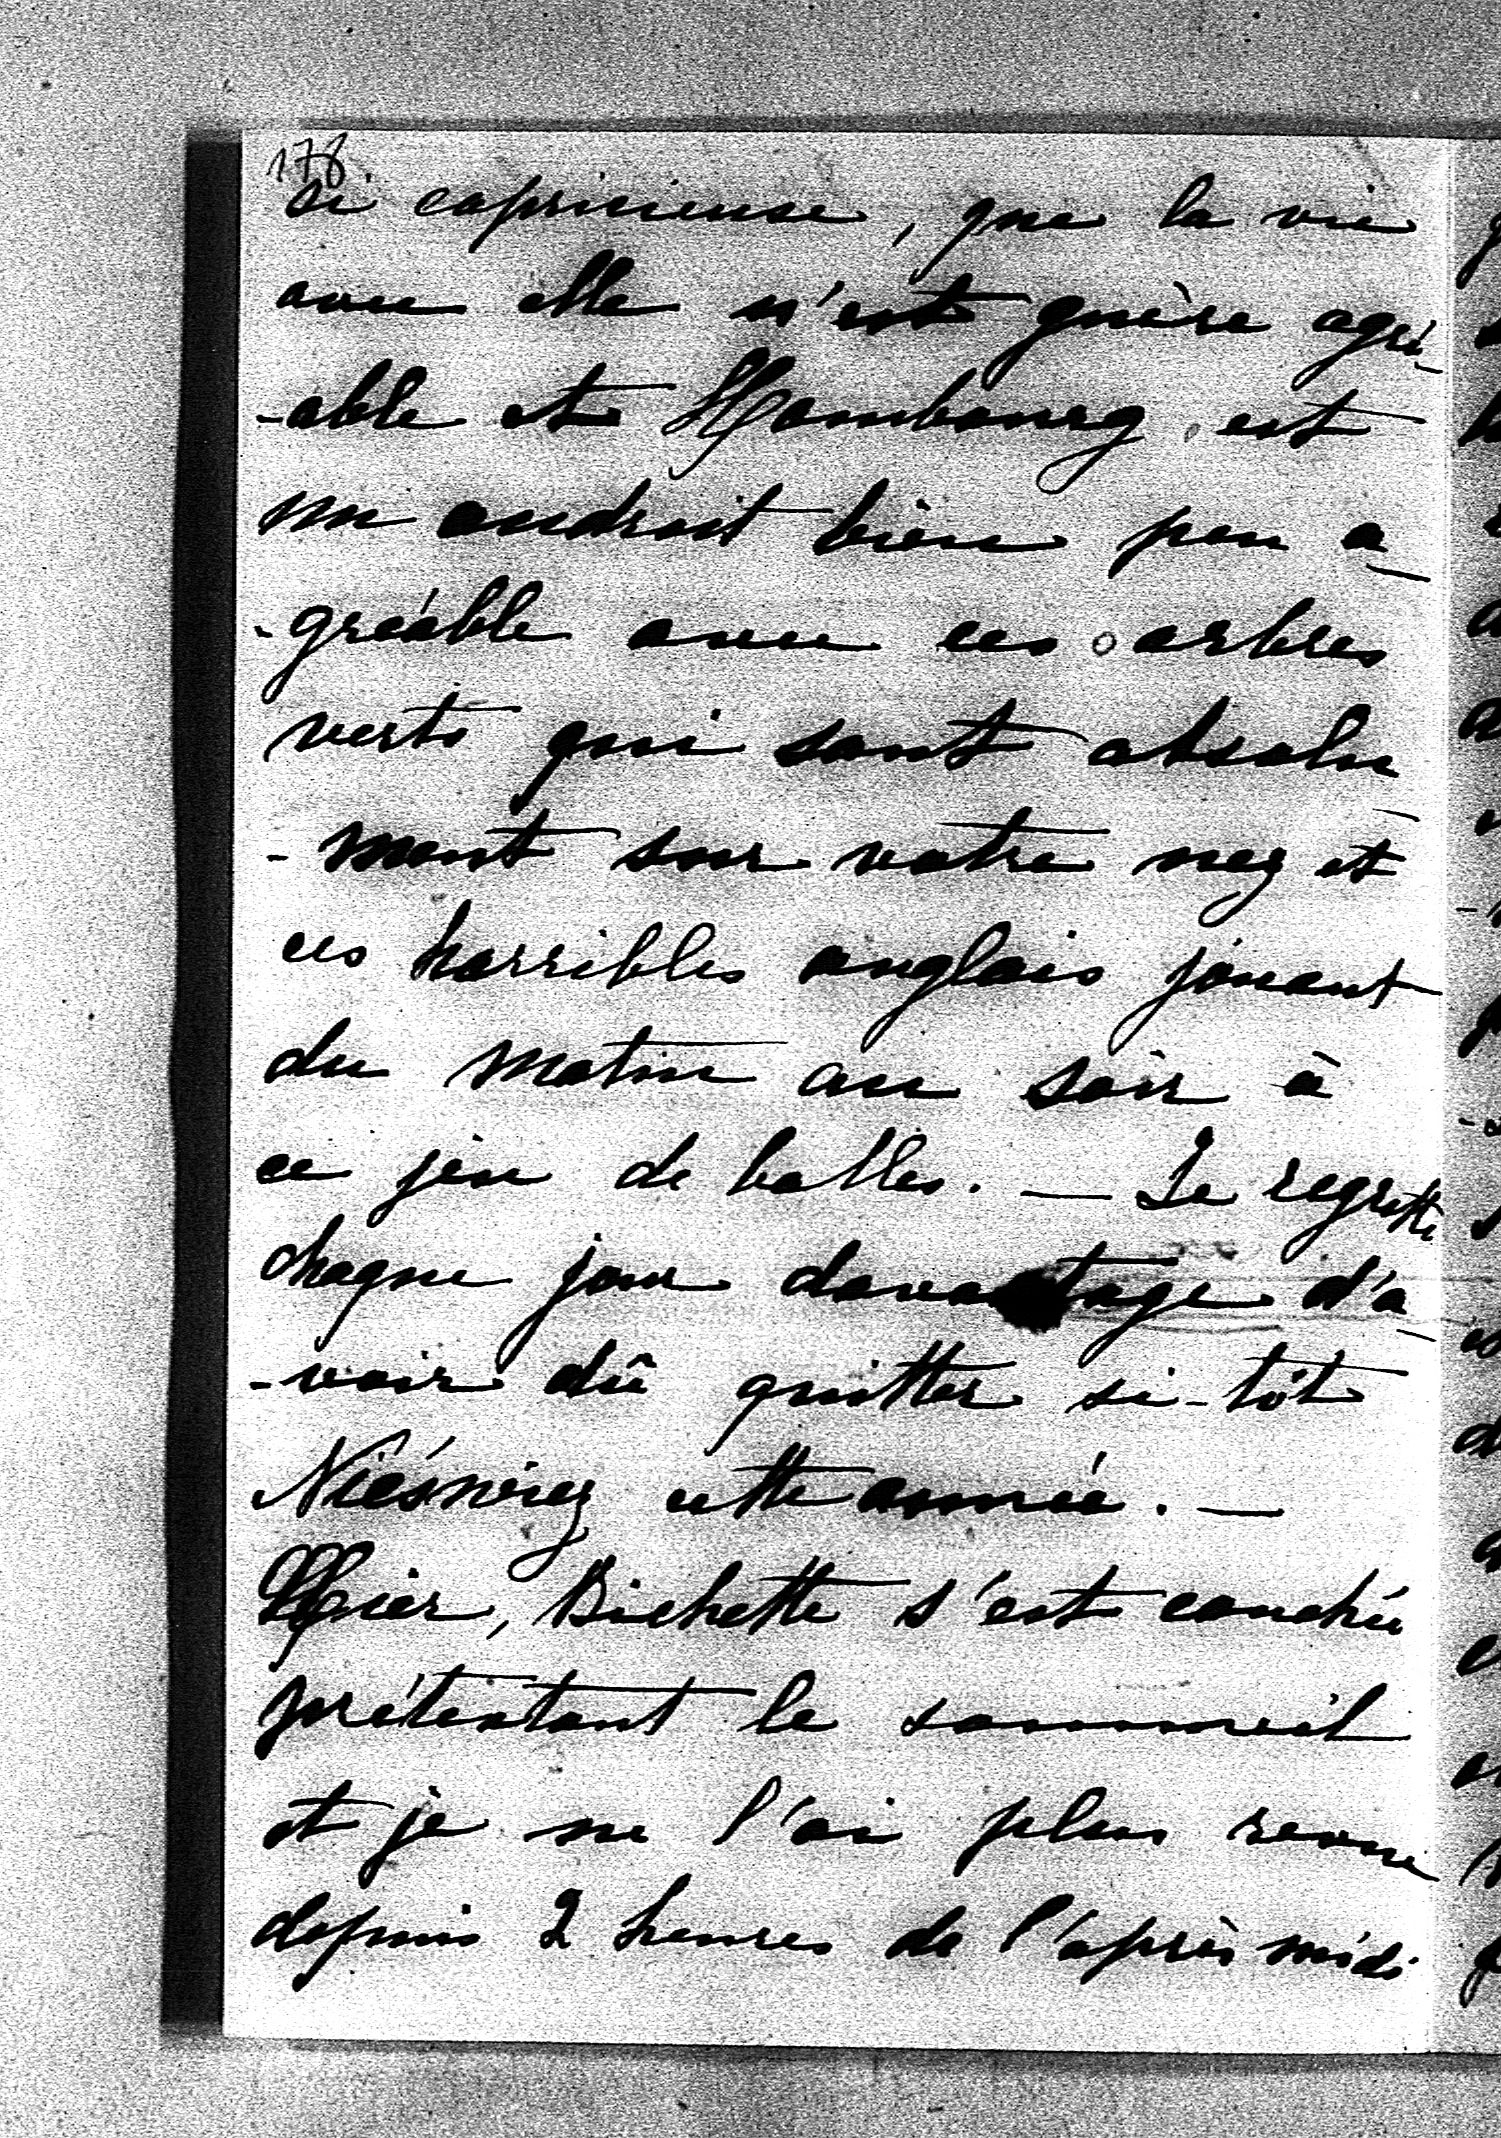 178.
si capricieuse, que la vie
avec elle n'est guère agré
-able et Hombourg est
un endroit bien peu a
-gréable avec ces arbres
verts qui sont absolu
-ment sur votre nez et
ces horribles anglais jouant
du matin au soir à
ce jeu de balles. — Je regrette
chaque jour davantage d'a
-voir dû quitter si-tôt
Niéśwież cette année. —
Hier, Bichette s'est couchée
prétextant le sommeil
et je ne l'ai plus revue
depuis 2 heures de l'après midi